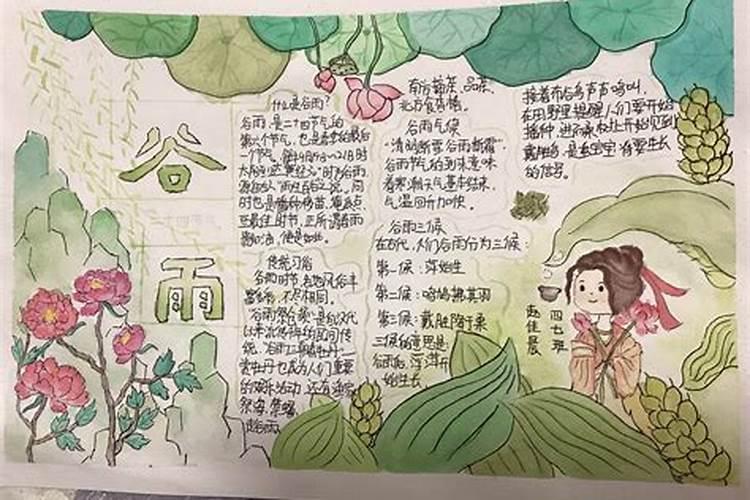 谷
雨
什么是谷雨?
谷雨是二十四节气的
第六个节气,也是春季的最后
一个节气,每年4月19~21日时
太阳到达黄经30°时为谷雨,
源自古人“雨生百谷”之说。同
时也是播种移苗、埯瓜点
豆最佳时节,正所谓春雨
贵如油,便是如此。
传统习俗
谷雨时节,各地风俗丰
富多彩,不尽相同。
以来流传
统,谷雨
赏牡丹也成为人们重要
的娱乐活动,还有
祭海、禁蝎、
走谷雨,
北方食香椿。
谷雨气候
“清明断雪,谷雨断霜”
谷雨节气的到来意味
着寒潮天气基本结束,
气温回升加快。
谷雨三候
在古代,人们谷雨分为三候:
第一候:萍始生
第二候:鸣鸠拂其羽
第三候:戴胜降于桑
三候的意思是:
谷雨后,浮萍开
始生长,
接着布谷鸟声声鸣叫,
在田野里提醒人们要开始
播种,
的信号。
四七班
赵佳晨